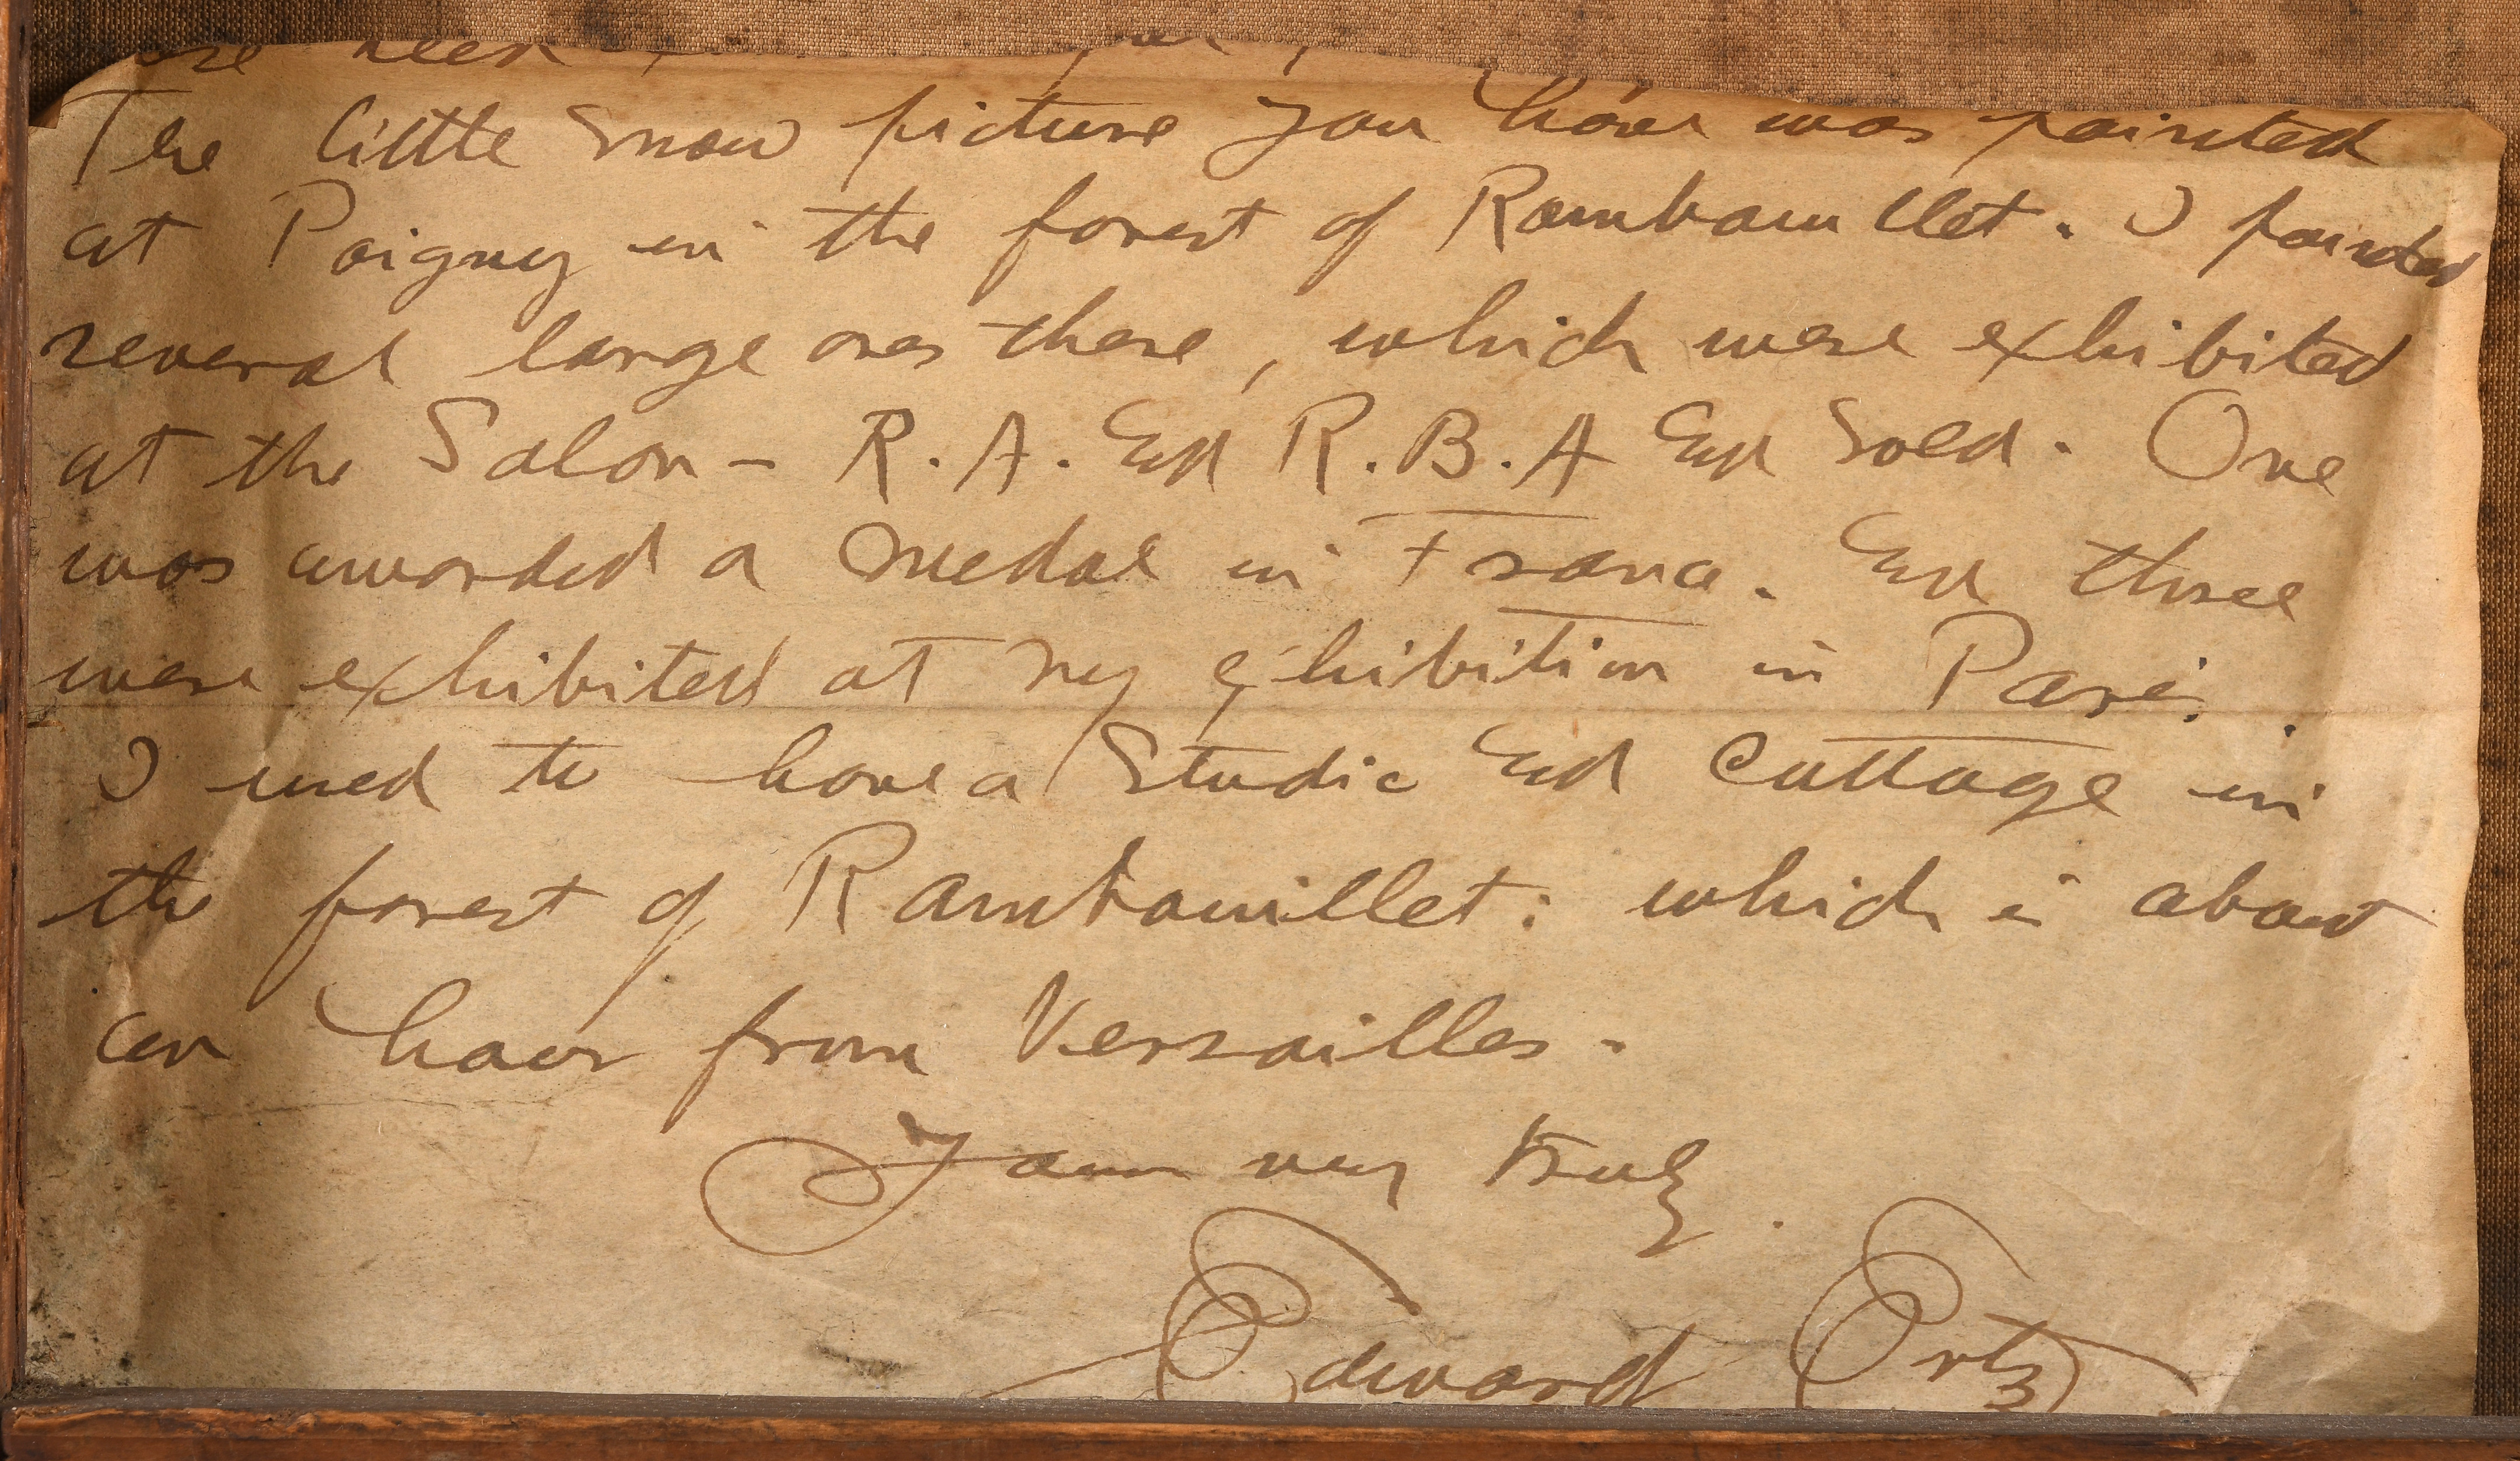 been
The little snow picture you have was painted
at Poigny in the forest of Rambouillet. I painted
several large ones there, which were exhibited
at the Salon - R.A. and R.B.A and sold. One
was awarded a medal in France. and three
were exhibited at my exhibition in Paris.
I used to have a Studio and Cottage in
the forest of Rambouillet: which is about
an hour from Versailles.
I am very truly
Edward Ertz